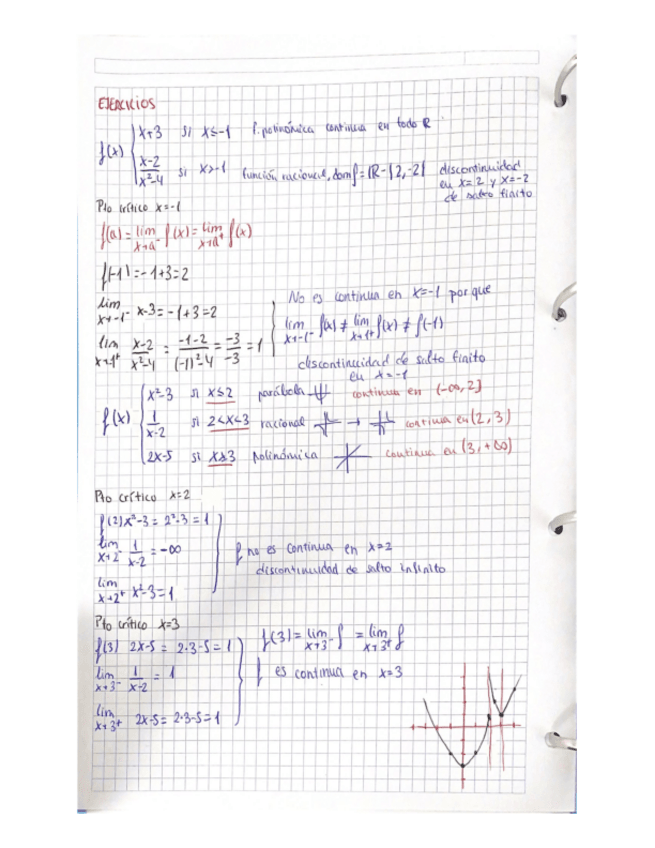 EJERCICIOS
f(x) { x+3 si x≤-1 f. polinómica continua en todo R
x-2/x²-4 si x>-1 función racional, domf = R-{2,-2} discontinuidad en x=2 y x=-2 de salto finito
Pto crítico x=-1
f(a) = lim x→a⁻ f(x) = lim x→a⁺ f(x)
f(-1) = -1+3 = 2
lim x→-1⁻ x-3 = -1+3 = 2
lim x→-1⁺ x-2/x²-4 = -1-2/(-1)²-4 = -3/-3 = 1
No es continua en x=-1 porque
lim x→-1⁻ f(x) ≠ lim x→1⁺ f(x) ≠ f(-1)
discontinuidad de salto finito
en x=-1
f(x) { x²-3 si x≤2 parábola continua en (-∞,2]
1/x-2 si 2<x<3 racional → continua en (2,3)
2x-5 si x≥3 polinómica continua en (3,+∞)
Pto crítico x=2
f(2) x²-3 = 2²-3 = 1
lim x→2⁻ 1/x-2 = -∞
lim x→2⁺ x²-3 = 1
f no es continua en x=2
discontinuidad de salto infinito
Pto crítico x=3
f(3) 2x-5 = 2·3-5 = 1
lim x→3⁻ 1/x-2 = 1
lim x→3⁺ 2x-5 = 2·3-5 = 1
f(3) = lim x→3⁻ f = lim x→3⁺ f
f es continua en x=3